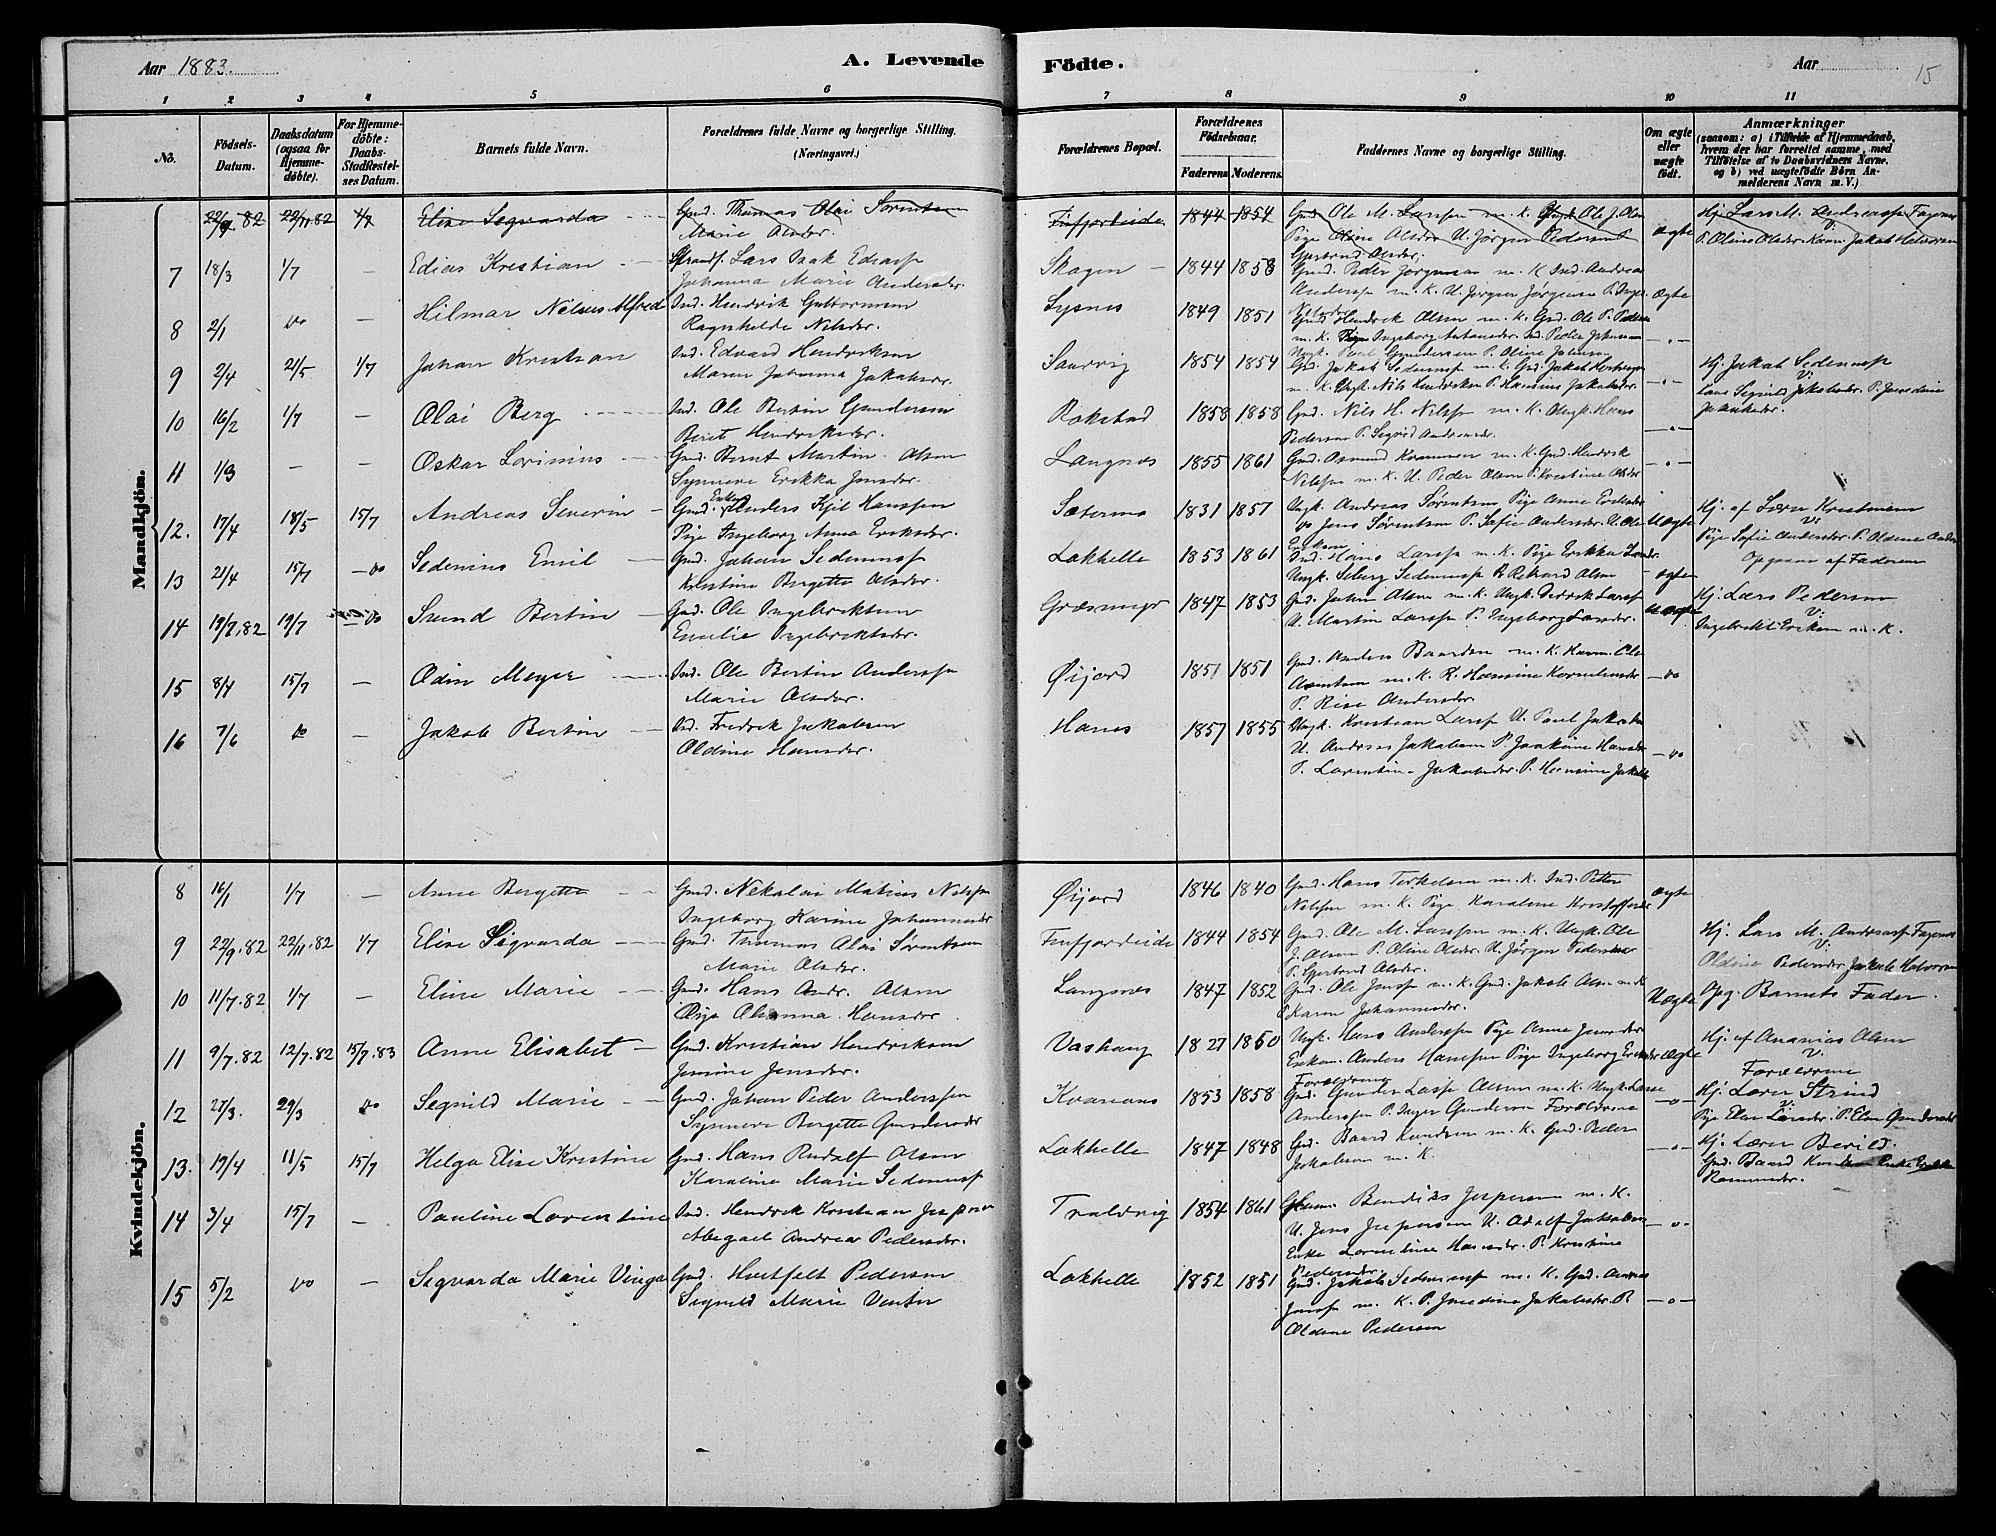 Aar 1883. A. Levende Fødte. Aar 15
1 2 3 4 5 6 7 8 9 10 11
No.
Fødsels-Datum.
Daabsdatum (ogsaa for Hjemme-døbte).
For Hjemme-døbte: Daabs-Stadfæstel-ses Datum.
Barnets fulde Navn.
Forældrenes fulde Navne og borgerlige Stilling. (Næringsvei.)
Forældrenes Bopæl.
Forældrenes Fødselsaar. Faderens Moderens.
Faddernes Navne og borgerlige Stilling.
Om ægte eller uægte født.
Anmærkninger
(saasom: a) i Tilfælde af Hjemmedaab, hvem der har forrettet samme, med Tilføielse af to Daabsvidners Navne, og b) ved uægtefødte Børn Anmelderens Navn m. V.)
Mandkjøn.
22/9 82 22/11 82 1/7 Elise Segvarda Gmd. Thomas Olai Sørentsen
Marie Olsdr. 1844 1854 Gmd. Ole M. Larssen m. K. Ungk. Ole J. Olsen
Pige Oline Olsdr. U. Jørgen Pedersen P.
Gjertrud Olsdr. ægte
Hj. Lars M. Andreass. Fagernes
V.
P. Oline Olsdr. Kone Jakob Halvorsen
7 18/3 1/7 — Edias Kristian Strands. Lars Isak Edrass.
Johanna Marie Andersdr. Skogen 1844 1858
Gmd. Peder Jørgensen m. K. Ind. Andreas
Anderss. m. K. U. Jørgen Jørgensen P. Inger ægte
8 2/1 do — Hilmar Nelseus Alfred Ind. Hendrik Guttormsen
Ragnhilde Nilsdr. Lysnes 1849 1851
Gmd. Hendrik Olsen m. K. Gmd. Ole P. Peders.
m. K. Pige Ingeborg Antonsdr. Ind. Peder Johansen —"—
9 2/4 21/5 1/7 Johan Kristian Ind. Edvard Hendriksen
Maren Johanna Jakobsdr. Saurvig 1854 1854
Ungk. Paul Gundersen P. Oline Johnsen
Gmd. Jakob Sedeniuss. m. K. Gmd. Jakob
m. K. Ungk. Nils Hendriksen P. Hansine Jakobsdr. —"—
Hj. Jakob Sedeniuss.
V.
Lars Segvild Jakobsdr. P. Jensdine
Jakobsdr.
10 16/2 1/7 — Olai Berg Ind. Ole Bertin Gundersen
Beret Hendriksdr. Rokstad 1858 1858
Gmd. Nils H. Nelss. m. K. Ungk. Hans
Pedersen P. Segrid Andreasdr. —"—
11 1/3 — — Oskar Lorinius Gmd. Bernt Martin Olsen
Synnere Erikka Jensdr. Langnes 1855 1861
Gmd. Osmund Rasmussen m. K. Gmd. Hendrik
Nilssen m. K. U. Peder Olsen P. Kristine Olsdr. —"—
12. 17/4 18/5 15/7 Andreas Severin Gmd. Enkem. Anders Kjil Hanssen
Pige Ingeborg Anna Eriksdr. Sætermo 1831 1857
Ungk. Andreas Sørentsen Pige Anne Eriksdr.
do Jens Sørentsen P. Sofie Andersdr. U. Ole
Eriksen Uægte
Hj. af Søren Kristensen
V.
Pige Sofie Andersdr. P. Oldine Anders.
13 21/4 15/7 — do Sedenius Emil Gmd. Johan Sedeniuss.
Kristine Bergette Olsdr. Lakhelle 1853 1861
Ind. Hans Larss. m. K. Pige Erikka Larsdr.
Ungk. Seberg Sedeniuss. P. Rekard Olsen ægte
Opgaven af Faderen
14 19/7.82 19/7 do Svend Bertin Gmd. Ole Ingebrektsen
Emilie Ingebrektsdr. Græsmyr 1847 1853
Gmd. Johan Olsen m. K. Ungk. Didrik Larss.
U. Martin Larss. P. Ingeborg Larsdr. ægte
Hj. Lars Pedersen
V.
Ingebrekt Eriksen m. K.
15 8/4 15/7 — Odin Meyer Ind. Ole Bertin Anderss.
Marie Olsdr. Øijord 1851 1851
Gmd. Anders Baardsen m. K. Husm. Ole
Arntsen m. K. P. Hansine Korneliusdr.
P. Rise Andersdr. — do
16 7/6 do — Jakob Bertin Ind. Fredrik Jakobsen
Oldine Hansdr. Hanes 1857 1855
Ungk. Kristian Larss. U. Paul Jakobs.
U. Andreas Jakobsen P. Joakime Hansdr.
P. Lorentine Jakobsdr. P. Hermine Jakobs. — do
Kvindekjøn.
8 16/1 1/7 — Anne Bergette Gmd. Nekolai Matius Nelss.
Ingeborg Karine Johannesdr. Øijord 1846 1840
Gmd. Hans Terkelsen m. K. Ind. Petter
Nilssen m. K. Pige Karoline Kristoffersd. ægte
9 22/9.82 22/11.82 1/7 Elise Sigvarda Gmd. Thomas Olai Sørentsen
Marie Olsdr. Finfjordeide 1844 1854
Gmd. Ole M. Larssen m. K. Ungk. Ole
J. Olsen P. Oline Olsdr. U. Jørgen Pedersen
P. Gjertrud Olsdr.
Hj. Lars M. Andreass. Fagernes
V.
Oldine Pedersdr. Jakob Halvorsen
10 11/7.82 1/7 — Eline Marie Gmd. Hans Andr. Olsen
Pige Olianna Hansdr. Langnes 1847 1852
Gmd. Ole Jenss. m. K. Gmd. Jakob Olsen m. K.
P. Karen Johannesdr. Uægte
Opg. Barnets Fader.
11 9/7.82 12/7.82 15/7.83 Anne Elisabet Gmd. Kristian Hendriksen
Jensine Jensdr. Vashaug 1827 1850
Ungk. Hans Anderssen Pige Anne Jensdr.
Enkem. Anders Hanssen Pige Ingeborg Eriksdr.
Forældrene ægte
Hj. af Ananias Olsen
V.
Forældrene
12 27/3. 29/3 do Segnild Marie Gmd. Johan Peder Anderssen
Synnere Bergette Gundersdr. Kvanaas 1853 1858
Gmd. Gunder Lasse Olsen m. K. Ungk. Lasse
Anderssen P. Inger Gundersen Forældrene —"—
Hj. Lærer Strind
V.
Pige Elen Larsdr. P. Elen Gundersdr.
13. 19/4 11/5 15/7 Helga Elise Kristine Gmd. Hans Rudolf Olsen
Karoline Marie Sedeniuss. Lakhelle 1847 1848
Gmd. Baard Knudsen m. K. Gmd. Peder
Jakobsen m. K. —"—
Hj. Lærer Berild.
Gmd. Baard Knudsen Enke
Rasmusdr.
14 3/4 15/7 — Pauline Lorentine Ind. Hendrik Kristian Jespersen
Abegael Andrea Pedersdr. Traldvig 1854 1861
Husm. Bendiks Jespersen m. K.
U. Jens Jespersen U. Adolf Jakobsen
Enke Lorentine Hansdr. P. Kristine
Pedersdr. —"—
15 5/2 do — Segvarda Marie Vinga Gmd. Hvitfelt Pedersen
Segnild Marie Venter Lakhelle 1852 1851
Gmd. Jakob Sedeniuss. m. K. Gmd. Andreas
Jenss. m. K. P. Jensdina Jakobsdr. P.
Oldine Pedersen —"—